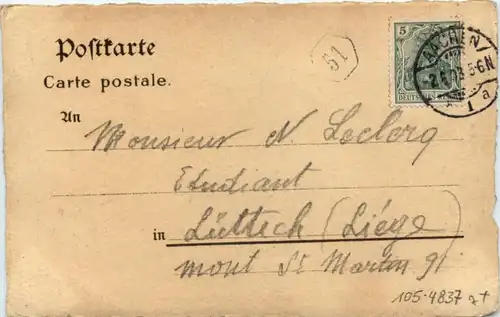 Postkarte
Carte postale.
51
5
DEUTSCHES
AACHEN
5-6N
1 a
An
Monsieur N. Leclerq
Etudiant
in Lüttich (Liége)
mont St Martin 91
105-4837